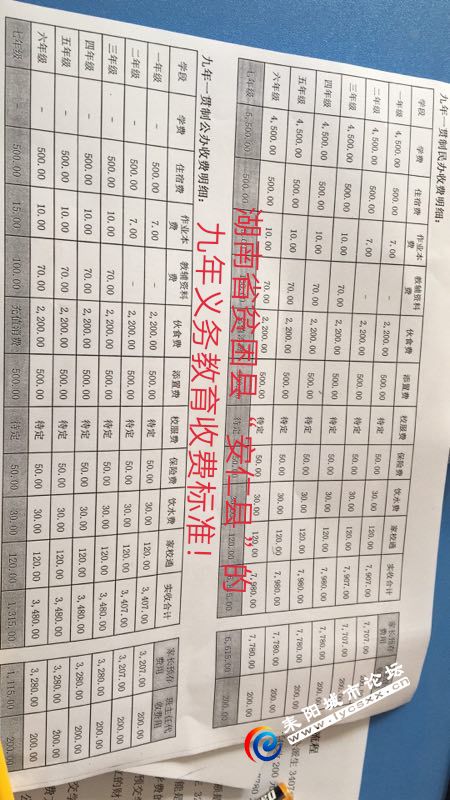 九年一贯制民办收费明细:
学段 学费 住宿费 作业本费 教辅资料费 伙食费 添置费 校服费 保险费 饮水费 家校通 实收合计 家长预存费用
一年级 4,500.00 500.00 7.00 - 2,200.00 500.00 待定 50.00 30.00 120.00 7,907.00 7,707.00 200.00
二年级 4,500.00 500.00 7.00 - 2,200.00 500.00 待定 50.00 30.00 120.00 7,907.00 7,707.00 200.00
三年级 4,500.00 500.00 10.00 70.00 2,200.00 500.00 待定 50.00 30.00 120.00 7,980.00 7,780.00 200.00
四年级 4,500.00 500.00 10.00 70.00 2,200.00 500.00 待定 50.00 30.00 120.00 7,980.00 7,780.00 200.00
五年级 4,500.00 500.00 10.00 70.00 2,200.00 500.00 待定 50.00 30.00 120.00 7,980.00 7,780.00 200.00
六年级 4,500.00 500.00 10.00 70.00 2,200.00 500.00 待定 50.00 30.00 120.00 7,980.00 7,780.00 200.00
七年级 5,500.00 500.00 120.00 6,615.00 200.00
湖南省贫困县“安仁县”的
九年义务教育收费标准!
九年一贯制公办收费明细:
学段 学费 住宿费 作业本费 教辅资料费 伙食费 添置费 校服费 保险费 饮水费 家校通 实收合计 家长预存费用 班主任代收费用
一年级 - 500.00 7.00 - 2,200.00 500.00 待定 50.00 30.00 120.00 3,407.00 3,207.00 200.00
二年级 - 500.00 7.00 - 2,200.00 500.00 待定 50.00 30.00 120.00 3,407.00 3,207.00 200.00
三年级 - 500.00 10.00 70.00 2,200.00 500.00 待定 50.00 30.00 120.00 3,480.00 3,280.00 200.00
四年级 - 500.00 10.00 70.00 2,200.00 500.00 待定 50.00 30.00 120.00 3,480.00 3,280.00 200.00
五年级 - 500.00 10.00 70.00 2,200.00 500.00 待定 50.00 30.00 120.00 3,480.00 3,280.00 200.00
六年级 - 500.00 10.00 70.00 2,200.00 500.00 待定 50.00 30.00 120.00 3,480.00 3,280.00 200.00
七年级 - 500.00 15.00 100.00 充值消费 500.00 待定 50.00 30.00 120.00 1,315.00 1,115.00 200.00
耒阳城市论坛
www.lysxx.cn